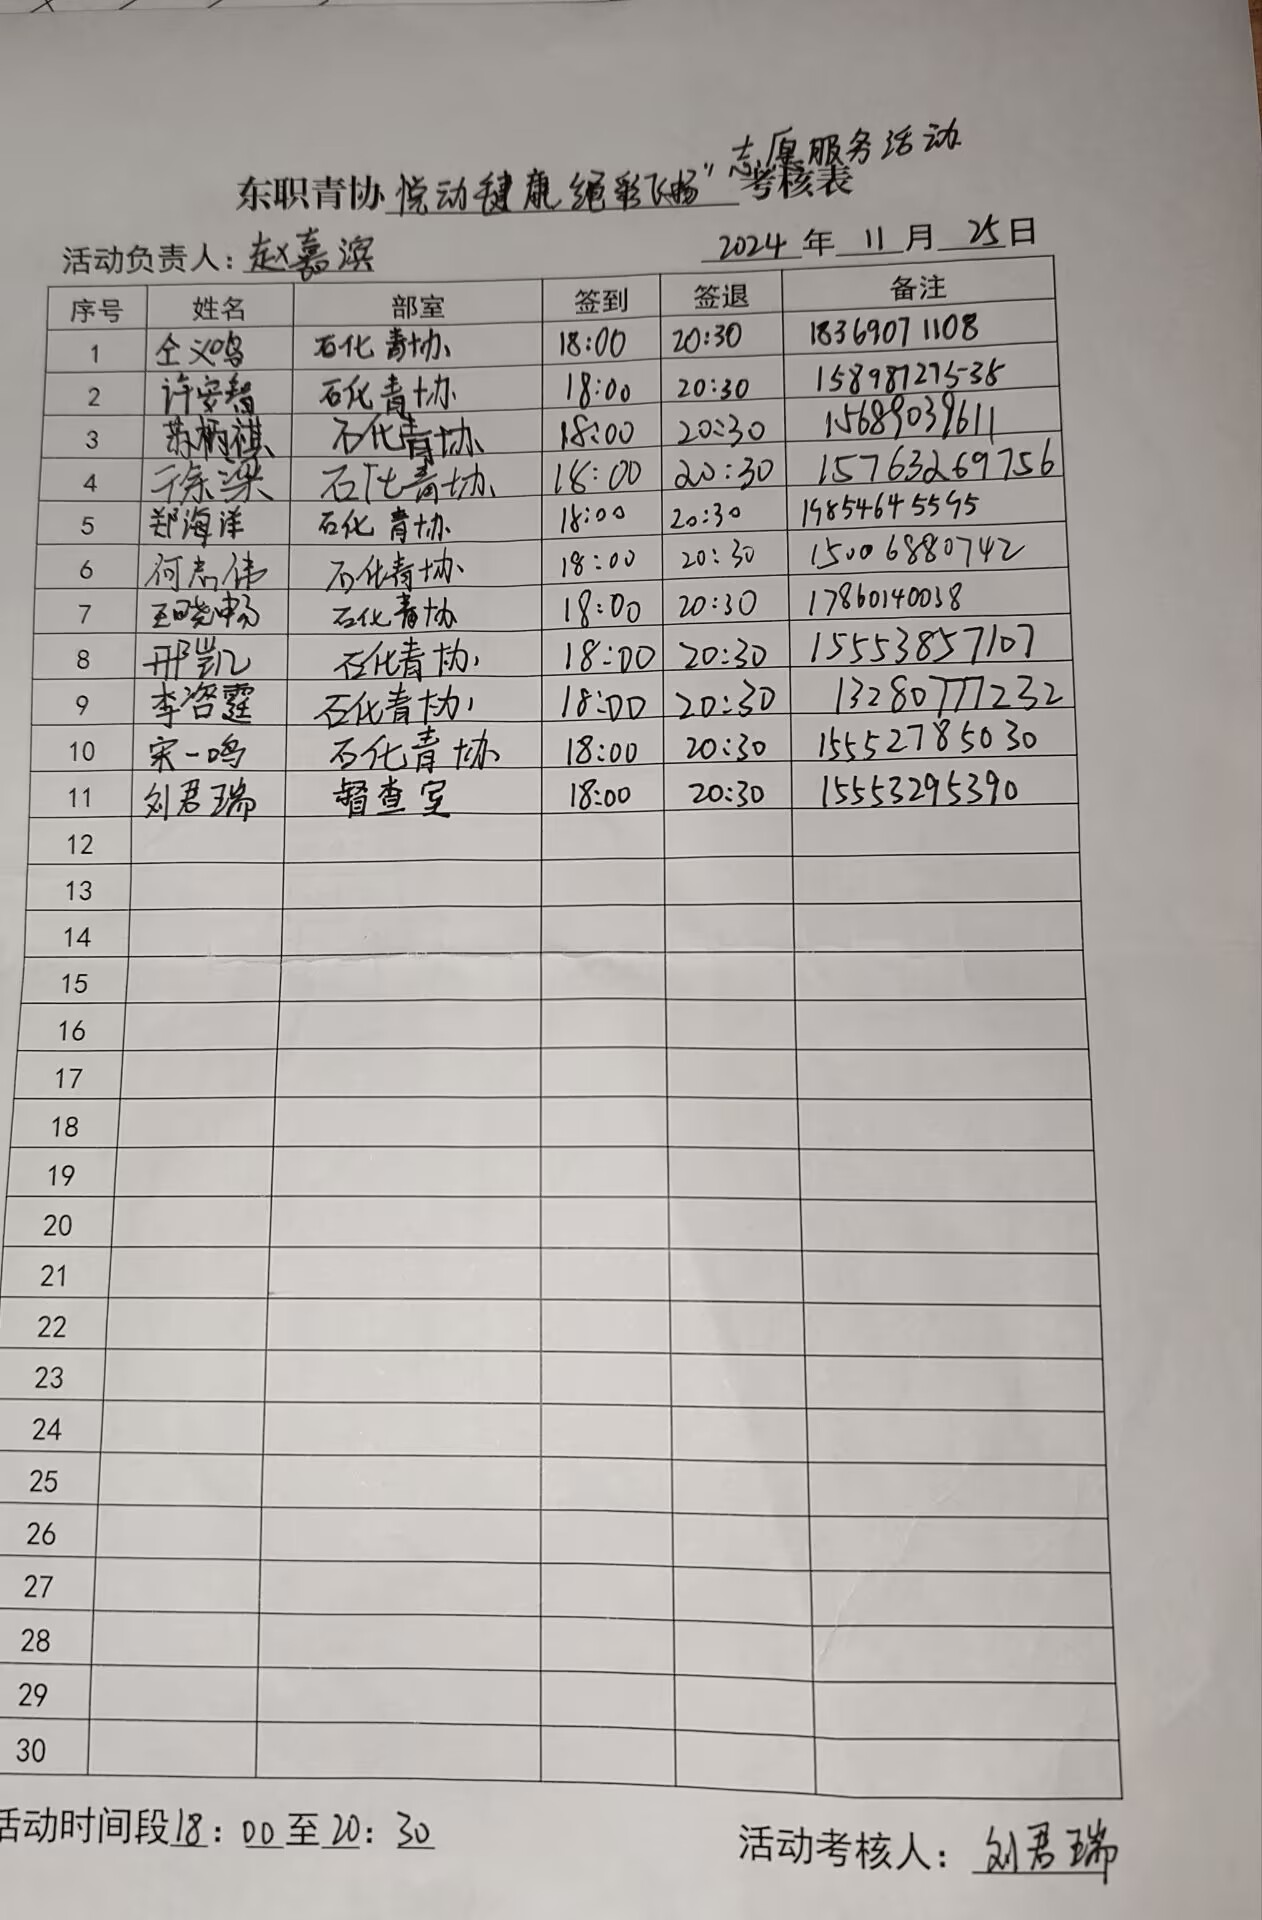 志愿服务活动
东职青协 悦动健康 绳彩飞扬" 考核表
活动负责人: 赵嘉滨 2024 年 11 月 25 日
序号 姓名 部室 签到 签退 备注
1 仝义鸣 石化青协 18:00 20:30 18369071108
2 许安智 石化青协 18:00 20:30 15898727535
3 石化青协 18:00 20:30 15689039611
4 石化青协 18:00 20:30 15763269756
5 郑海洋 石化青协 18:00 20:30 19854645595
6 何志伟 石化青协 18:00 20:30 15006880742
7 王晓畅 石化青协 18:00 20:30 17860140038
8 邢凯 石化青协 18:00 20:30 15553857107
9 李咨霆 石化青协 18:00 20:30 13280777232
10 宋一鸣 石化青协 18:00 20:30 15552785030
11 刘君瑞 督查室 18:00 20:30 15553295390
12
13
14
15
16
17
18
19
20
21
22
23
24
25
26
27
28
29
30
活动时间段 18: 00 至 20: 30 活动考核人: 刘君瑞